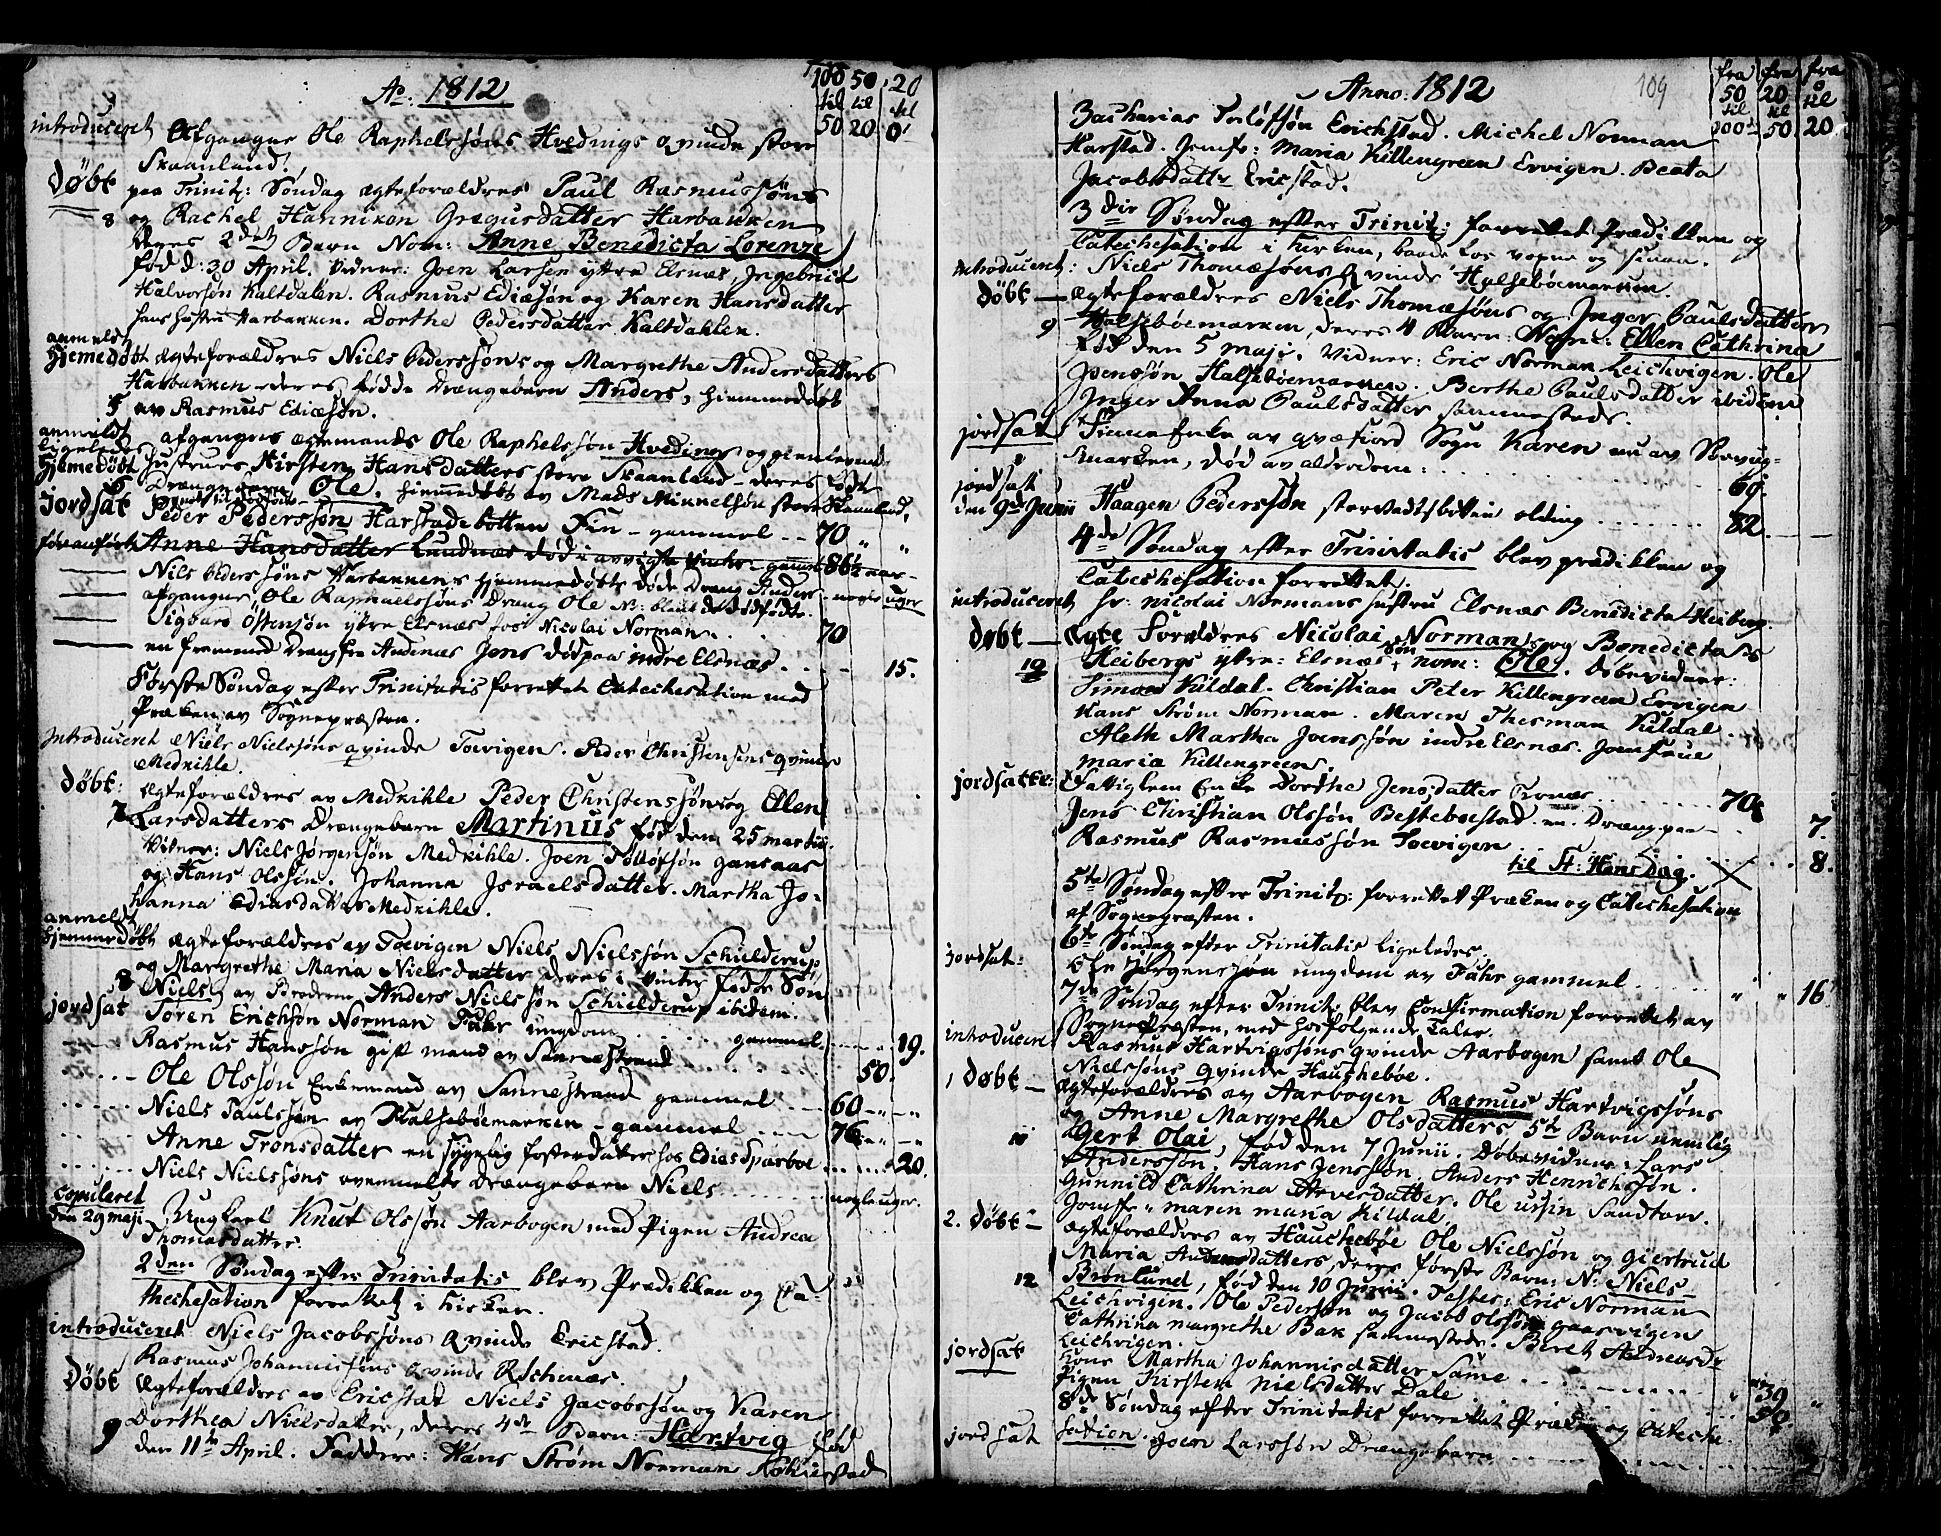 Ao: 1812
100 50 20
til til til
50 20 0
introduceret Afgangne Ole Raphelssøns Hvedings qvinde store
Skaanland.
døbt paa Trinit: Søndag Ægteforældres Paul Rasmussøns
8 og Rachel Hannikon Gregusdatter Harbakken
deres 2det Barn Nom: Anne Benedicta Lorenze
fød d: 30 April. Vidner: Joen Larsen ÿttre Elsnæs, Ingebrict
Halvorsøn Kaltdalen. Rasmus Ediæsøn og Karen Hansdatter
hans hustru Harbakken. Dorthe Pedersdatter Kaltdahlen.
anmeldt
hiemedøbt Ægteforældres Niels Pederssøns og Margrethe Andersdatters
Harbakken deres fødde Drængebarn Anders, hiemmedøbt
5 av Rasmus Ediæsøn.
anmeldt ligeledes afgangnes ægtemands Ole Raphelssøn Hvedings og gienlevende
hjemedøbt hustrues Kirsten Hansdatters store Skaanland deres fødte
Drængebarn Ole. hiemmedøbt av Mads Mikkelsøn store Skaanland.
jordsat Peder Pederssøn Harstadbotten Fin - gammel -- 70 " "
føranført Anne Hansdatter Lundnæs død gammel 86½ aar
Nils Pederssøns Harbakkens hjemmedøbte døde Dreng Anders - nogle uger
afgangne Ole Raphaelssøns Dræng Ole
Sigbard Östensøn ÿttre Elsnæs hos Nicolai Norman 70
en fremmed Dreng fra Andenæs Jens død paa indre Elsnæs 15.
Første Søndag efter Trinitatis forrettet Catechesation med
Præken av Sognepræsten.
Introduceret Niels Nielssøns qvinde Toevigen. Peder Christensens qvinde
Medkihle.
døbt: Ægteforældres av Medkihle Peder Christenssøns og Elen
7 Larsdatters Drængebarn Martinus fød den 25 martii.
Vidner: Niels Jørgensøn Medkihle. Joen Tollofsøn Gansaas
og Hans Olssøn. Johanna Israelsdatter. Martha Jo-
hanna Ediasdatter Medkihle.
anmeldt
hjemmedøbt Ægteforældres av Toevigen Niels Nielssøn Schielderup
og Margrethe Maria Nielsdatter deres i vinter fødde Søn
8 Niels av Broderen Anders Nielssøn Schielderup ibidem.
jordsat Tøren Erichsøn Norman Fuhr ungdom gammel. 19.
Rasmus Hanssøn gift mand av Sannestrand 50.
Ole Olssøn Enkemand av Sannestrand gammel 60 - " - "
Niels Paulssøn av Halsebøemarken - gammel 76 - " - "
Anne Tronsdatter en sygelig fosterdatter hos Edias Sparboe 20.
Niels Nielssøns ovenmelte Drængebarn Niels nogle uger.
copuleret
den 29 maji Ungkarl Knut Olssøn Aarbogen med Pigen Andrea
Thomasdatter.
2den Søndag efter Trinitatis blev Prædikken og Ca-
thechesation forrettet i Kirken.
introduceret Niels Jacobssøns Qvinde Ericstad.
Rasmus Johannissøns qvinde Richnæs.
Døbt Ægteforældres av Ericstad Niels Jacobssøn og Karen
Dorthea Nielsdatter, deres 4de Barn: Hartvig fød
9 den 11te April. Faddere: Hans Strøm Norman
Anno: 1812 109
fra fra fra
50 20 0
til til til
100 50 20
Zacharias Torlofsøn Erichstad. Michel Norman
Harstad. Jomfr: Maria Killengreen Ervigen. Beata
Jacobsdattr Ericstad.
3die Søndag efter Trinit: forrettet Prædikken og
Catechesation i Kirken, baade for vogne og Smaa.
Introduceret: Niels Thomæsøns Qvinde Halsebøemarken.
døbt — Ægteforældres Niels Thomæsøns og Inger Paulsdatter
9 Halsebøemarken, deres 4 Barn: Nom: Ellen Cathrina
fød den 5 maji. Vidner: Eric Norman Leichvigen. Ole
Joenssøn Halsebøemarken. Berthe Paulsdatter ibidem
Inger Anna Paulsdatter sammesteds.
jordsat Finne Enke av Qvæfiord Sogn Karen nu av Sørvig-
marken, død av alderdom: 69.
jordsat
den 9de Junii Haagen Pederssøn storstadtsbotten olding 82.
4de Søndag efter Trinitatis blev prædikken og
Catechesation forrettet.
introduceret Hr: Nicolai Normans hustru Elsnæs Benedicta Heiberg.
døbt — Ægte Forældres Nicolai Normans og Benedicta
10 Heibergs ÿttre: Elsnæs Søn nom: Ole. Døbevidner:
Simon Kildal. Christian Peter Killengreen Ervigen
Hans Strøm Norman. Maren Thesman Kildal.
Aleth Martha Joenssøn indre Elsnæs. Jomfrue
maria Killengreen.
jordsatte: Fattiglem Enke Dorthe Jensdatter Tronæs 70
Jens Christian Olssøn Besteboestad en Dreng paa 7.
Rasmus Rasmussøn Toevigen 8.
til St: Hans dag.
5te Søndag efter Trinit: forrettet Præken og Catechesation
af Sognepræsten.
6te Søndag efter Trinitatis ligeledes,
Jordsat: Ole Jørgenssøn ungdom av Fuhr gammel " " 16
7de Søndag efter Trinit: blev Confirmation forrettet av
Sognepræsten, med hosfølgende Taler.
introduceret Rasmus Hartvigssøns qvinde Aarbogen samt Ole
Nielssøns qvinde Hauchebøe.
1 døbt — Ægteforældres av Aarbogen Rasmus Hartvigssøns
og Anne Margrethe Olsdatters 5te Barn nemlig
11 Gert Olai, fød den 7 Junii. Døbevidner: Lars
Anderssøn, Hans Jenssøn. Anders Henrichssøn.
Gunnild Cathrina Arversdatter. Ole ursin Sandtorv.
Jomfr: maren maria Kildal.
2. døbt — Ægteforældres av Hauchebøe Ole Nielssøn og Giertrud
Maria Andersdatters, deres første Barn: N: Niels
12 Brønlund, fød den 10 Junii. Testes: Eric Norman
Leichvigen. Ole Pederson og Jacob Olssøn gaasvigen
Cathrina margrethe Bak sammesteds. Beret Andreasdr
Leichvigen.
jordsat Kone Martha Johannisdatter Same 39
Pigen Kirsten Nielsdatter Dale
8de Søndag efter Trinitatis forrettet Præken og Catechi-
jordsat sation. Joen Larssøn Drængebarn